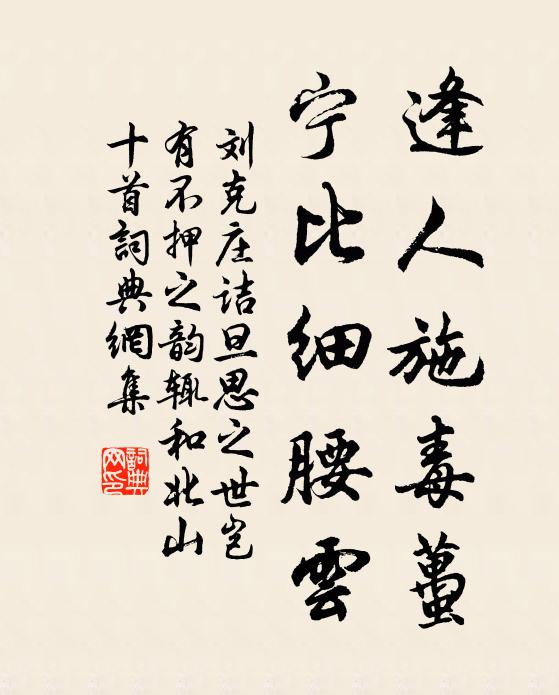 逢人施毒蠆
宁比细腰雲
刘克庄诘旦思之世岂
有不押之韵辄和北山
十首詞典網集
詞典
网印